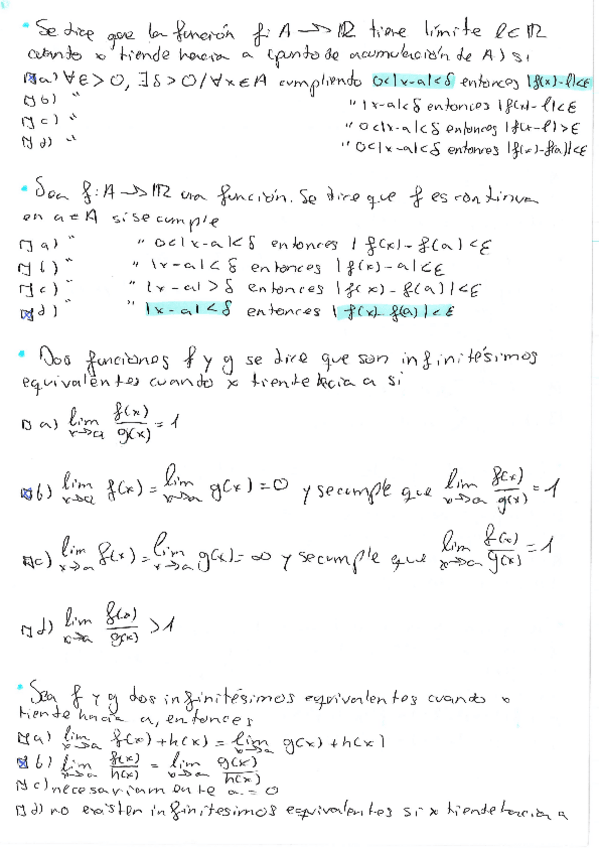 • Se dice que la función f: A → ℝ tiene límite l ∈ ℝ
cuando x tiende hacia a (punto de acumulación de A) si
☒ a) ∀ε > 0, ∃δ > 0 / ∀x ∈ A cumpliendo 0<|x-a|<δ entonces |f(x)-l|<ε
☐ b) " " |x-a|<δ entonces |f(x)-l|<ε
☐ c) " " 0<|x-a|<δ entonces |f(x)-l|>ε
☐ d) " " 0<|x-a|<δ entonces |f(x)-f(a)|<ε
• Sea f: A → ℝ una función. Se dice que f es continua
en a ∈ A si se cumple
☐ a) " " 0<|x-a|<δ entonces |f(x)-f(a)|<ε
☐ b) " " |x-a|<δ entonces |f(x)-a|<ε
☐ c) " " |x-a|>δ entonces |f(x)-f(a)|<ε
☒ d) " " |x-a|<δ entonces |f(x)-f(a)|<ε
• Dos funciones f y g se dice que son infinitésimos
equivalentes cuando x tiende hacia a si
☐ a) lim x→a f(x)/g(x) = 1
☒ b) lim x→a f(x) = lim x→a g(x) = 0 y se cumple que lim x→a f(x)/g(x) = 1
☐ c) lim x→a f(x) = lim x→a g(x) = ∞ y se cumple que lim x→a f(x)/g(x) = 1
☐ d) lim x→a f(x)/g(x) > 1
• Sea f y g dos infinitésimos equivalentes cuando x
tiende hacia a, entonces
☐ a) lim x→a f(x) + h(x) = lim x→a g(x) + h(x)
☒ b) lim x→a f(x)/h(x) = lim x→a g(x)/h(x)
☐ c) necesariamente a = 0
☐ d) no existen infinitesimos equivalentes si x tiende hacia a